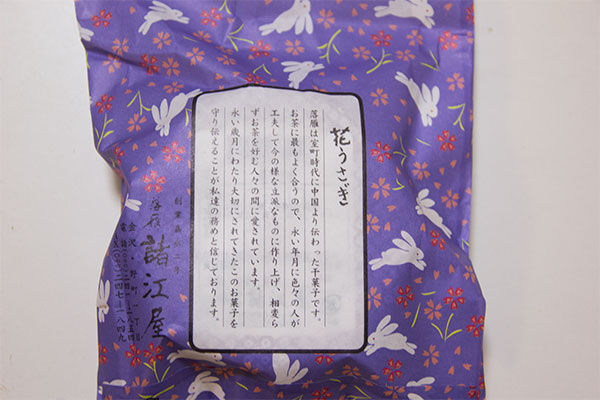 花うさぎ
落雁は室町時代に中国より伝わった干菓子です。
お茶に最もよく合うので、永い年月に色々の人が
工夫して今の様な立派なものに作り上げ、相変ら
ずお茶を好む人々の間に愛されています。
永い歳月にわたり大切にされてきたこのお菓子を
守り伝えることが私達の務めと信じております。
創業嘉永二年
落雁 諸江屋
金沢・野町